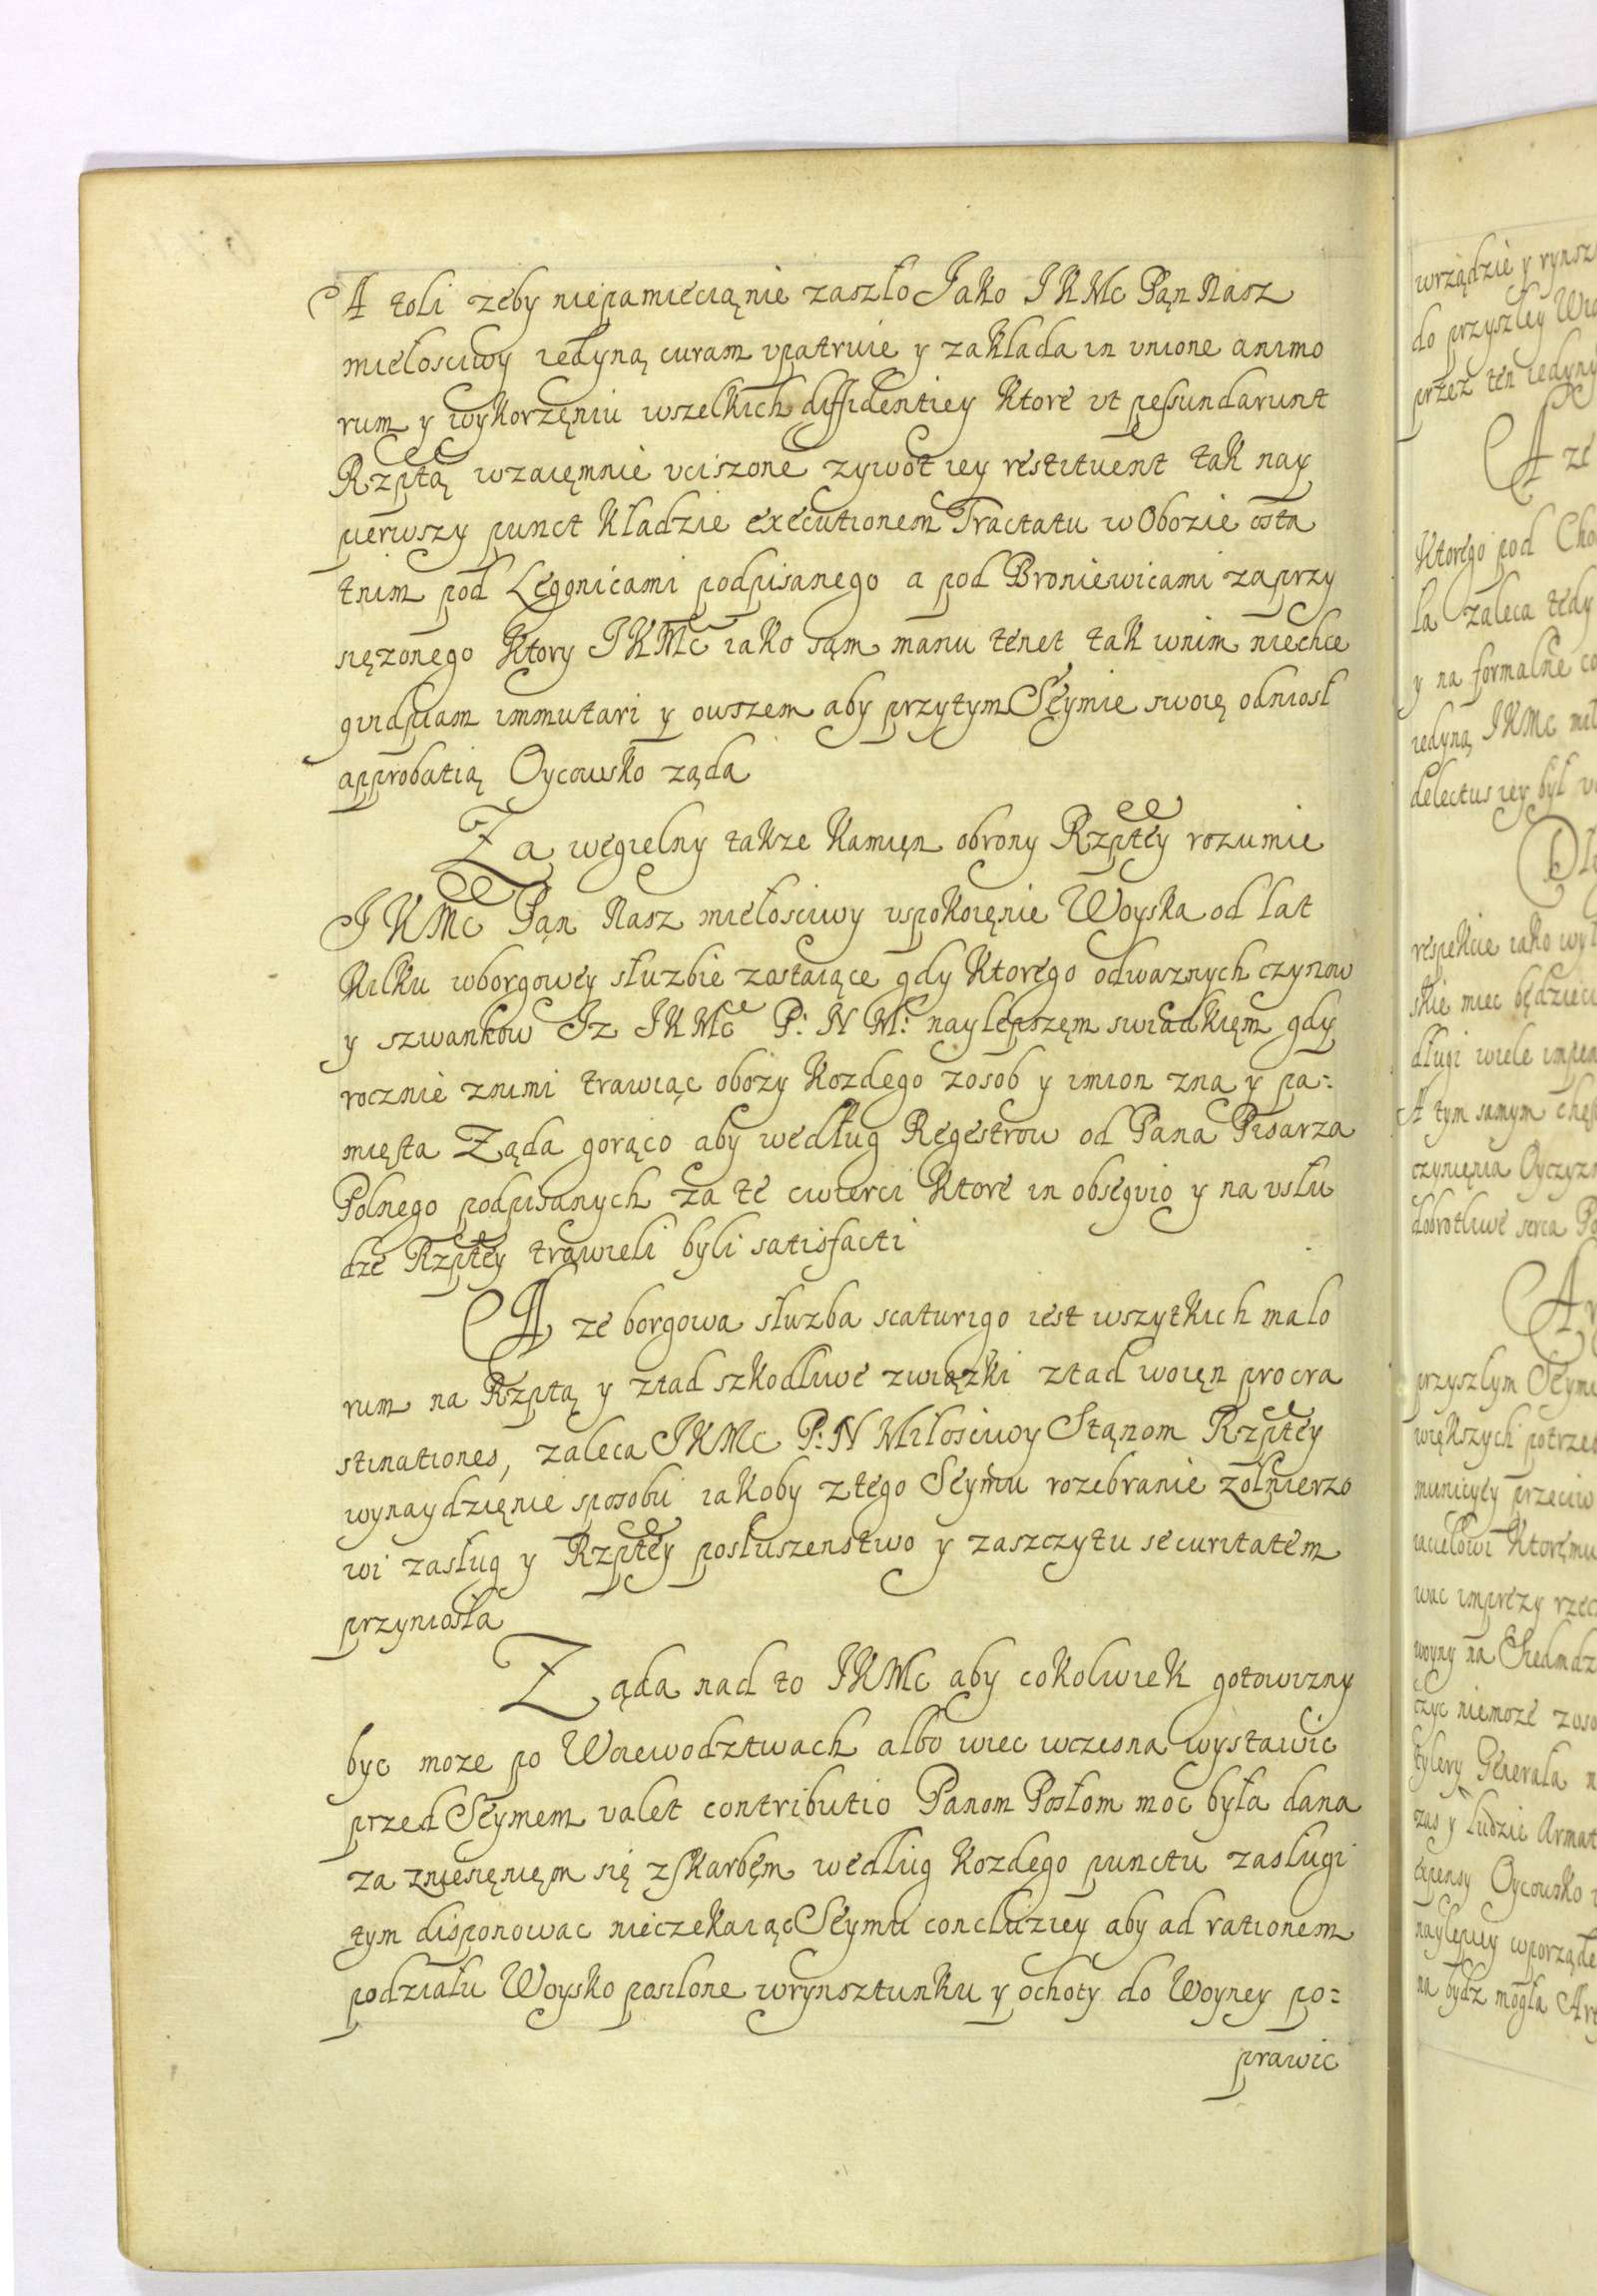 A toli zeby niepamiecią nie zaszło Jako JKMc Pąn Nasz
miełosciwy iedyną curam vpatruie y zakłada in vnione animo
rum y wykorzęniu wszelkich diffidentiey Ktore vt pessundarunt
Rzptą wzaięmnie vciszone zywot iey restituent tak nay
pierwszy punct kładzie executionem Tractatu w Obozie osta
tnim pod Legonicami podpisanego a pod Broniewicami zaprzy
sięzonego Ktory JKMc iako sąm manu tenet tak wnim niechce
quidpiam immutari y owszem aby przytym Seymie swoię odniosł
approbatią Oycowsko ząda
Za węgielny takze Kamięn obrony Rzptey rozumie
JKMc Pąn Nasz miełosciwy vspokoięnie Woyska od lat
kilku wborgowey słuzbie zostaiące gdy Ktorego odwaznych czynow
y szwankow Jz JKMc P: N M: naylepszęm swiadkięm gdy
rocznie znimi trawiąc obozy kozdego zosob y imion zna y pa:
mięta Ząda gorąco aby według Regestrow od Pana Pisarza
Polnego podpisanych za te cwierci Ktore in obsequio y na vsłu
dze Rzptey trawieli byli satisfacti
A ze borgowa słuzba scaturigo iest wszytkich malo
rum na Rzptą y ztad szkodliwe związki ztad woięn procra
stinationes, zaleca JKMc P: N Miłosciwy Stąnom Rzptey
wynaydzięnie sposobu iakoby ztego Seymu rozebranie zołnierzo
wi zasług y Rzptey posłuszenstwo y zaszczytu securitatem
przyniosła
Ząda nad to JKMc aby cokolwiek gotowizny
byc moze po Woiewodztwach albo wiec wczesna wystawic
przed Seymem valet contributio Panom Posłom moc była dana
za zniesięnięm się zskarbęm według kozdego punctu zasługi
tym disponowac nieczekaiąc Seymu concluziey aby ad rationem
podziału Woysko posilone wrynsztunku y ochoty do Woyney po:
prawic
wrządzie y rynsz
do przyszłey
przez ten iedyny
A ze
Ktorego pod Cho
la zaleca tedy
y na formalne co
iedyną JKMc
delectus iey był
respekcie iako wył
skie miec będzieci
długi wiele
A tym samym
czynięnia Oyczyz
dobrotliwe serca
przyszłym Seymu
większych potrzeb
municyey przeciw
iacielowi Ktoręmu
wac imprezy rzec
woyny na
czyc niemoze
tylery Generała
zas y ludzie Armat
expensy Oycowsko
naylepiey wporząde
na bydz mogła